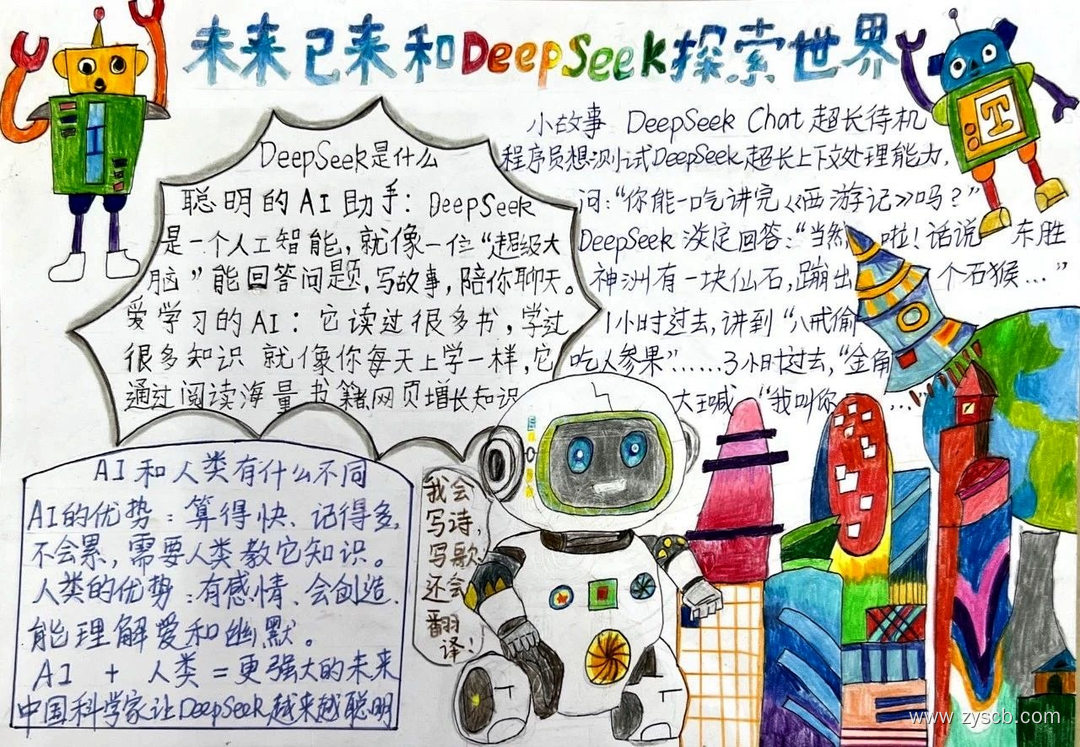 未来已来和DeepSeek探索世界
DeepSeek是什么
聪明的AI助手：DeepSeek
是一个人工智能，就像一位“超级大
脑”能回答问题，写故事，陪你聊天。
爱学习的AI：它读过很多书，学过
很多知识 就像你每天上学一样，它
通过阅读海量书籍网页增长知识
小故事 DeepSeek Chat超长待机
程序员想测试DeepSeek超长上下文处理能力，
问：“你能一吃讲完《西游记》吗？”
DeepSeek淡定回答：“当然 啦！话说 东胜
神洲有一块仙石，蹦出 个石猴…”
1小时过去，讲到“八戒偷
吃人参果”……3小时过去，“金角
大王喊 “我叫你 …
AI和人类有什么不同
AI的优势：算得快、记得多，
不会累，需要人类教它知识。
人类的优势：有感情、会创造、
能理解爱和幽默。
AI + 人类=更强大的未来
中国科学家让DeepSeek越来越聪明
我会
写诗，
写歌
还会
翻
译！
T
www.zyscb.com